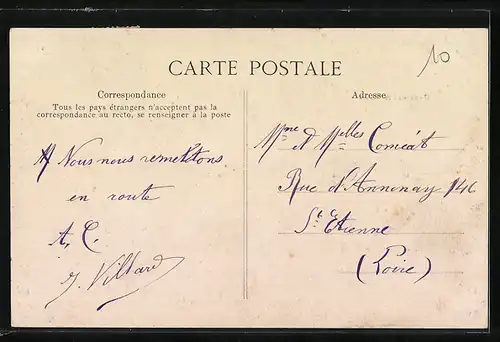 10
CARTE POSTALE
Correspondance
Tous les pays étrangers n'acceptent pas la
correspondance au recto, se renseigner à la poste
Nous nous remettons
en route
A. C.
J. Villard
Adresse
Mme et Melles
Rue d'Annonay 146
St Etienne
(Loire)